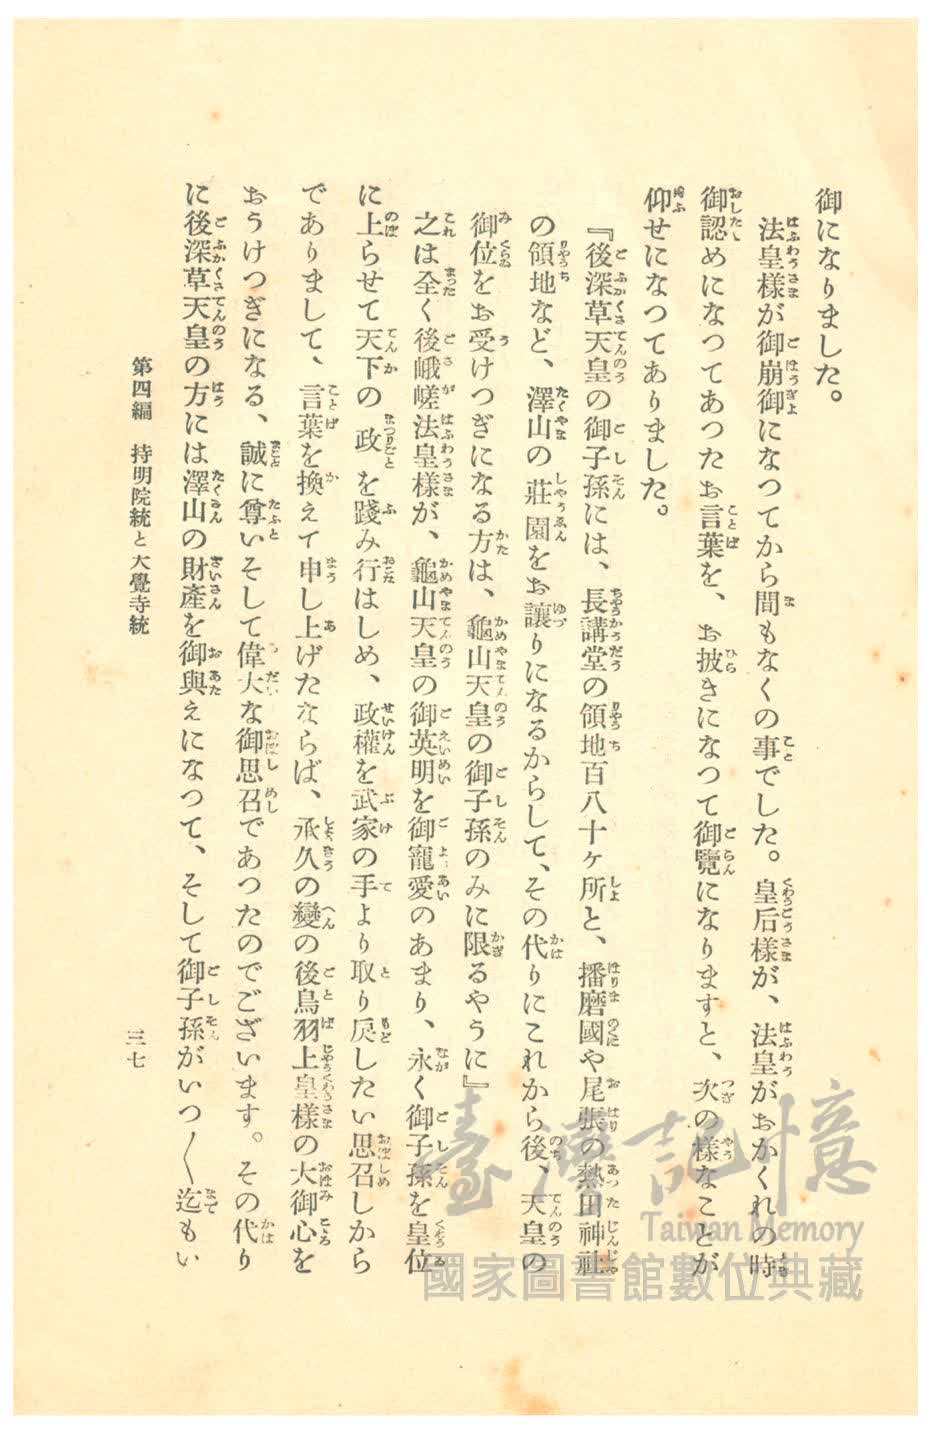 御になりました。
法皇様が御崩御になつてから間もなくの事でした。皇后様が、法皇がおかくれの時
御認めになつてあつたお言葉を、お披きになつて御覽になりますと、次の様なことが
仰せになつてありました。
『後深草天皇の御子孫には、長講堂の領地百八十ヶ所と、播磨國や尾張の熱田神社
の領地など、澤山の莊園をお讓りになるからして、その代りにこれから後、天皇の
御位をお受けつぎになる方は、龜山天皇の御子孫のみに限るやうに』
之は全く後峨嵯法皇様が、龜山天皇の御英明を御寵愛のあまり、永く御子孫を皇位
に上らせて天下の政を踐み行はしめ、政權を武家の手より取り戾したい思召しから
でありまして、言葉を換えて申し上げたならば、承久の變の後鳥羽上皇様の大御心を
おうけつぎになる、誠に尊いそして偉大な御思召であつたのでございます。その代り
に後深草天皇の方には澤山の財產を御與えになつて、そして御子孫がいつ〱迄もい
第四編　持明院統と大覺寺統
三七
臺灣記憶
Taiwan Memory
國家圖書館數位典藏